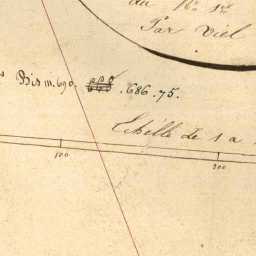 du No. 1er
Par Viel
Bis m. 690. 686.75.
Echelle de 1 a
100 200